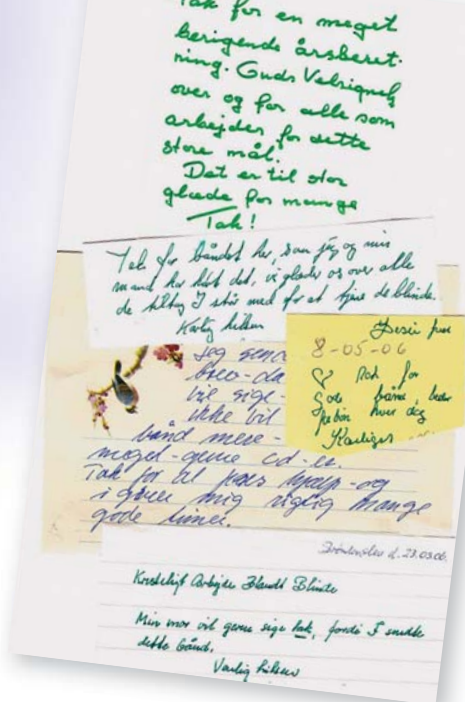 Tak for en meget
berigende årsberet-
ning. Guds Velsignelse
over og for alle som
arbejder for dette
store mål.
Det er til stor
glæde for mange
Tak!
Tak for båndet her, som jeg og min
mand har lidt det, vi glæder os over alle
de tiltag I står med for at tjene de blinde.
Kærlig hilsen
8-05-06
Tak for
bånd
Jeg send
brev - da
vil sige -
ikke vil
bånd mere -
meget - gerne cd-er.
Tak for al jeres hjælp - og
i giver mig rigtig mange
gode timer.
d. 23.03.06.
Kristeligt Arbejde Blandt Blinde
Min mor vil gerne sige tak, fordi I sendte
dette bånd.
Venlig hilsen